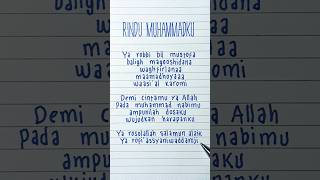 RINDU MUHAMMADKU
Ya robbi bil mustofa
baligh maqooshidana
waghfirlanaa
maamadhoyaaa
waasi'al karomi
Demi cintamu ya Allah
Pada muhammad nabimu
ampunilah dosaku
wujudkan harapanku
Ya rosulallah salamun alaik
Ya rofi'assyaniwaddaroji